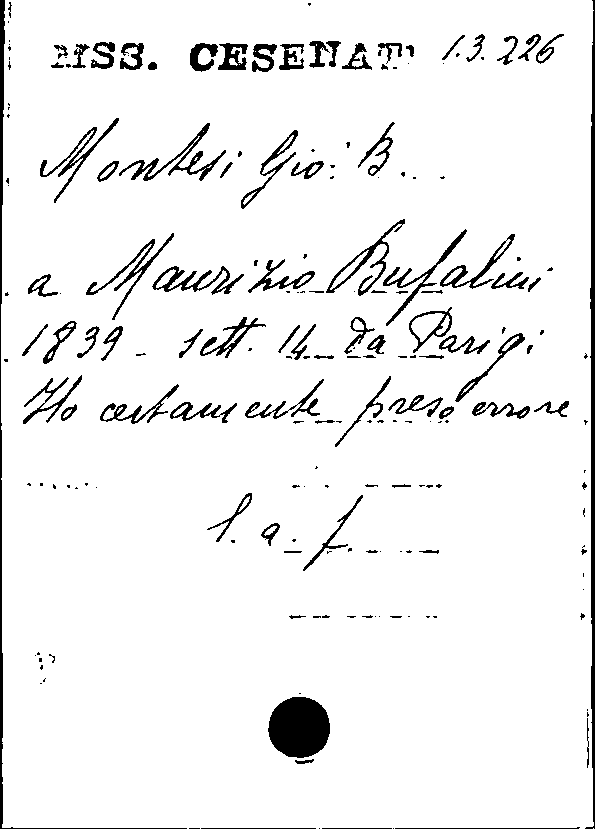 MSS. CESENATI 1.3.226
Montesi Gio: B...
a Maurizio Bufalini
1839 - sett. 14 da Parigi
Ho certamente preso errore
l. a. f.